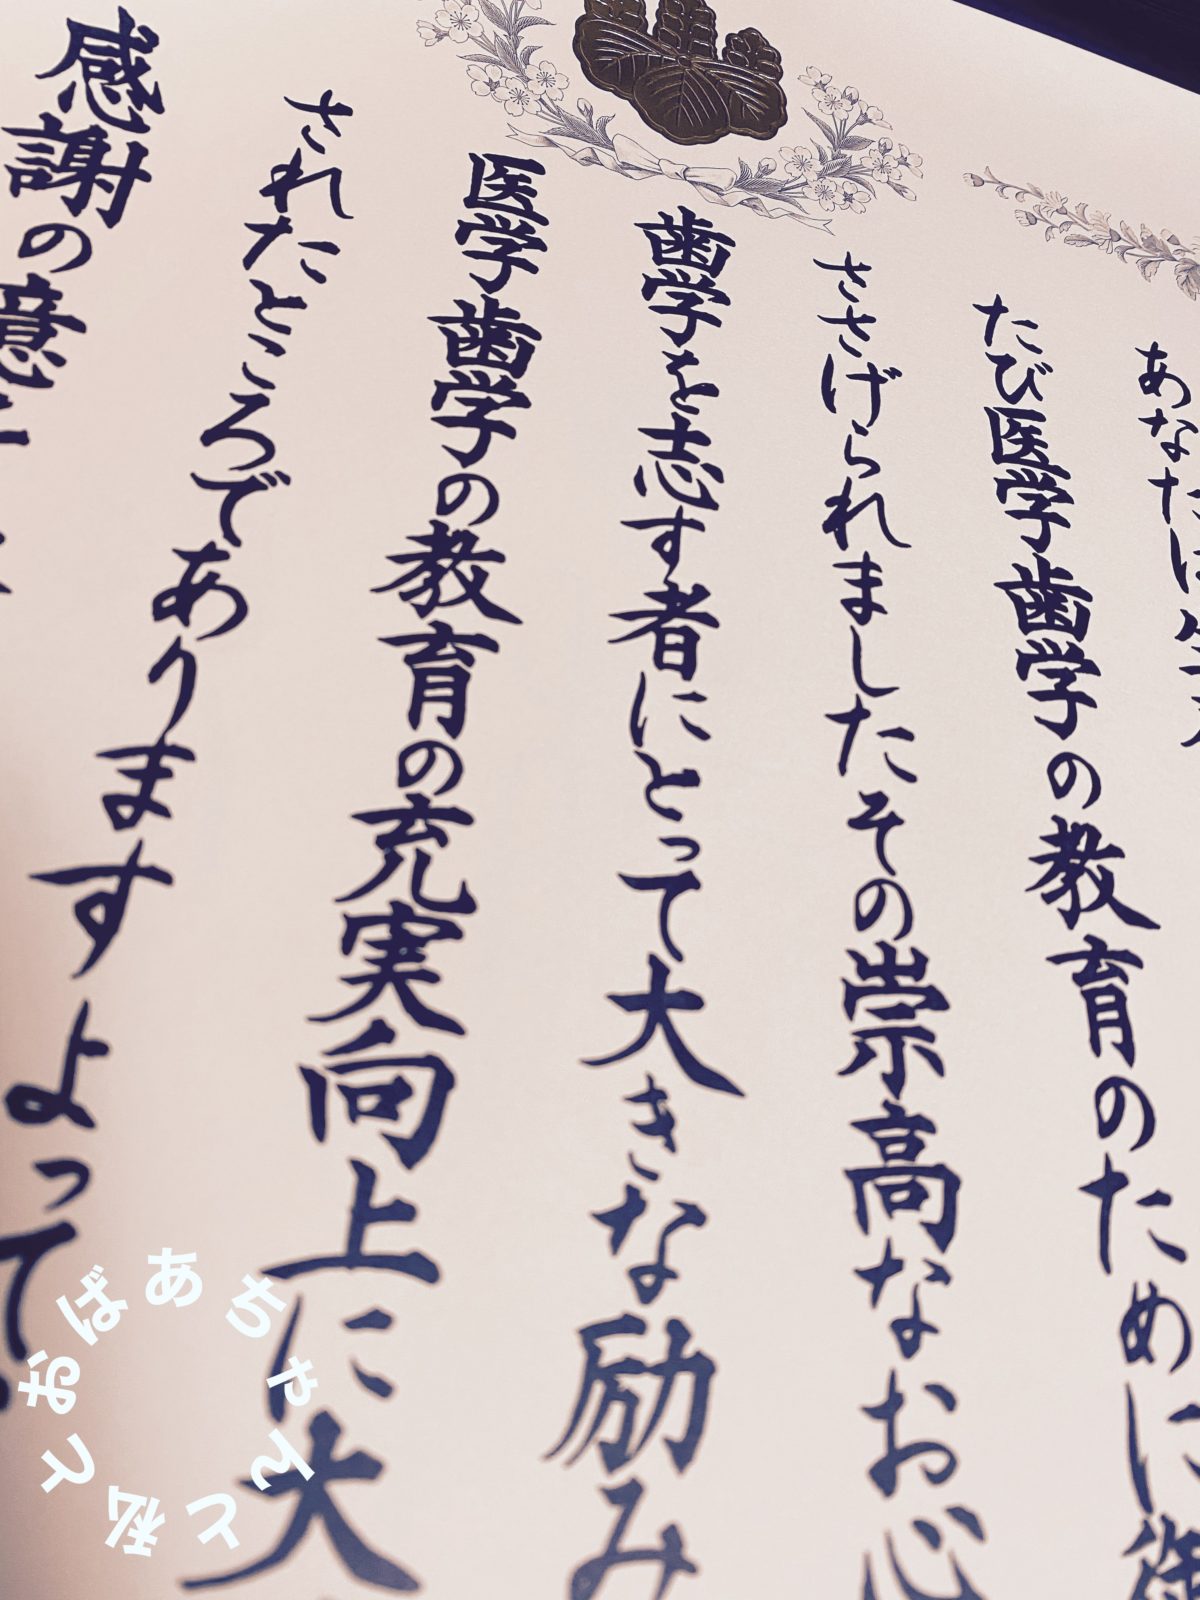 あなたは生前
たび医学歯学の教育のために御
ささげられましたその崇高なお心
歯学を志す者にとって大きな励み
医学歯学の教育の充実向上に大
されたところであります よって
感謝の意
おばあちゃんと私と